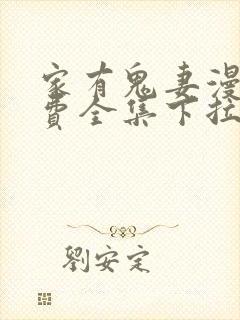 家有鬼妻漫
费全集下拉
劉安定